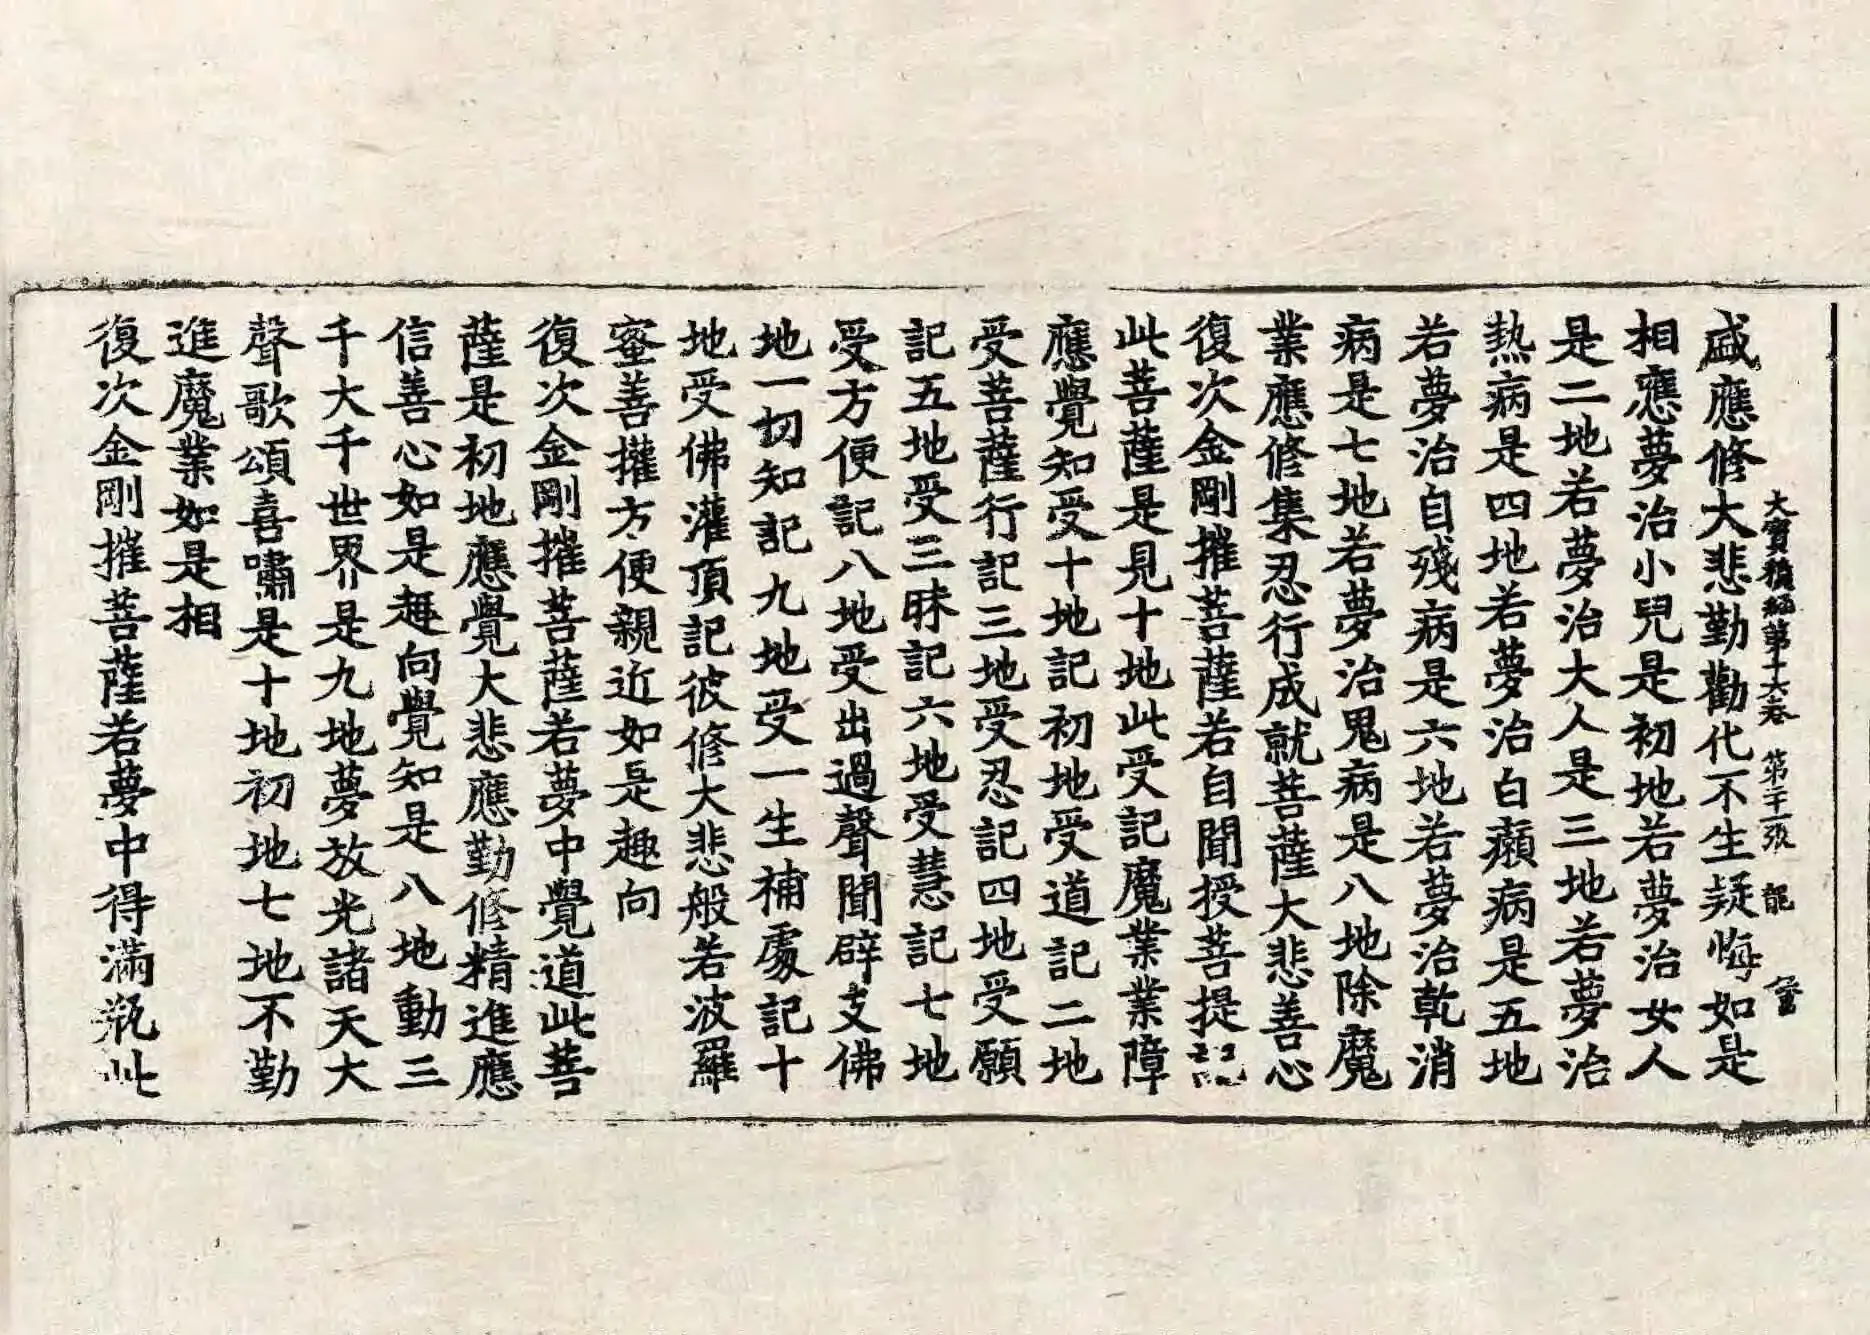 大寶積經第十六卷 第二十二張 龍
盛應修大悲勤勸代不生疑悔如是
相應夢治小兒是初地若夢治女人
是二地若夢治大人是三地若夢治
熱病是四地若夢治白癩病是五地
若夢治自殘病是六地若夢治乾消
病是七地若夢治鬼病是八地除魔
業應修集忍行成就菩薩大悲善心
復次金剛摧菩薩若自聞授菩提記
此菩薩是見十地此受記魔業業障
應覺知受十地記初地受道記二地
受菩薩行記三地受忍記四地受願
記五地受三昧記六地受慧記七地
受方便記八地受出過聲聞辟支佛
地一切知記九地受一生補處記十
地受佛灌頂記彼修大悲般若波羅
蜜善㩲方便親近如是趣向
復次金剛摧菩薩若夢中覺道此菩
薩是初地應覺大悲應勤修精進應
信善心如是趣向覺知是八地動三
千大千世界是九地夢放光諸天大
聲歌頌喜嘯是十地初地七地不勤
進魔業如是相
復次金剛摧菩薩若夢中得滿瓶此